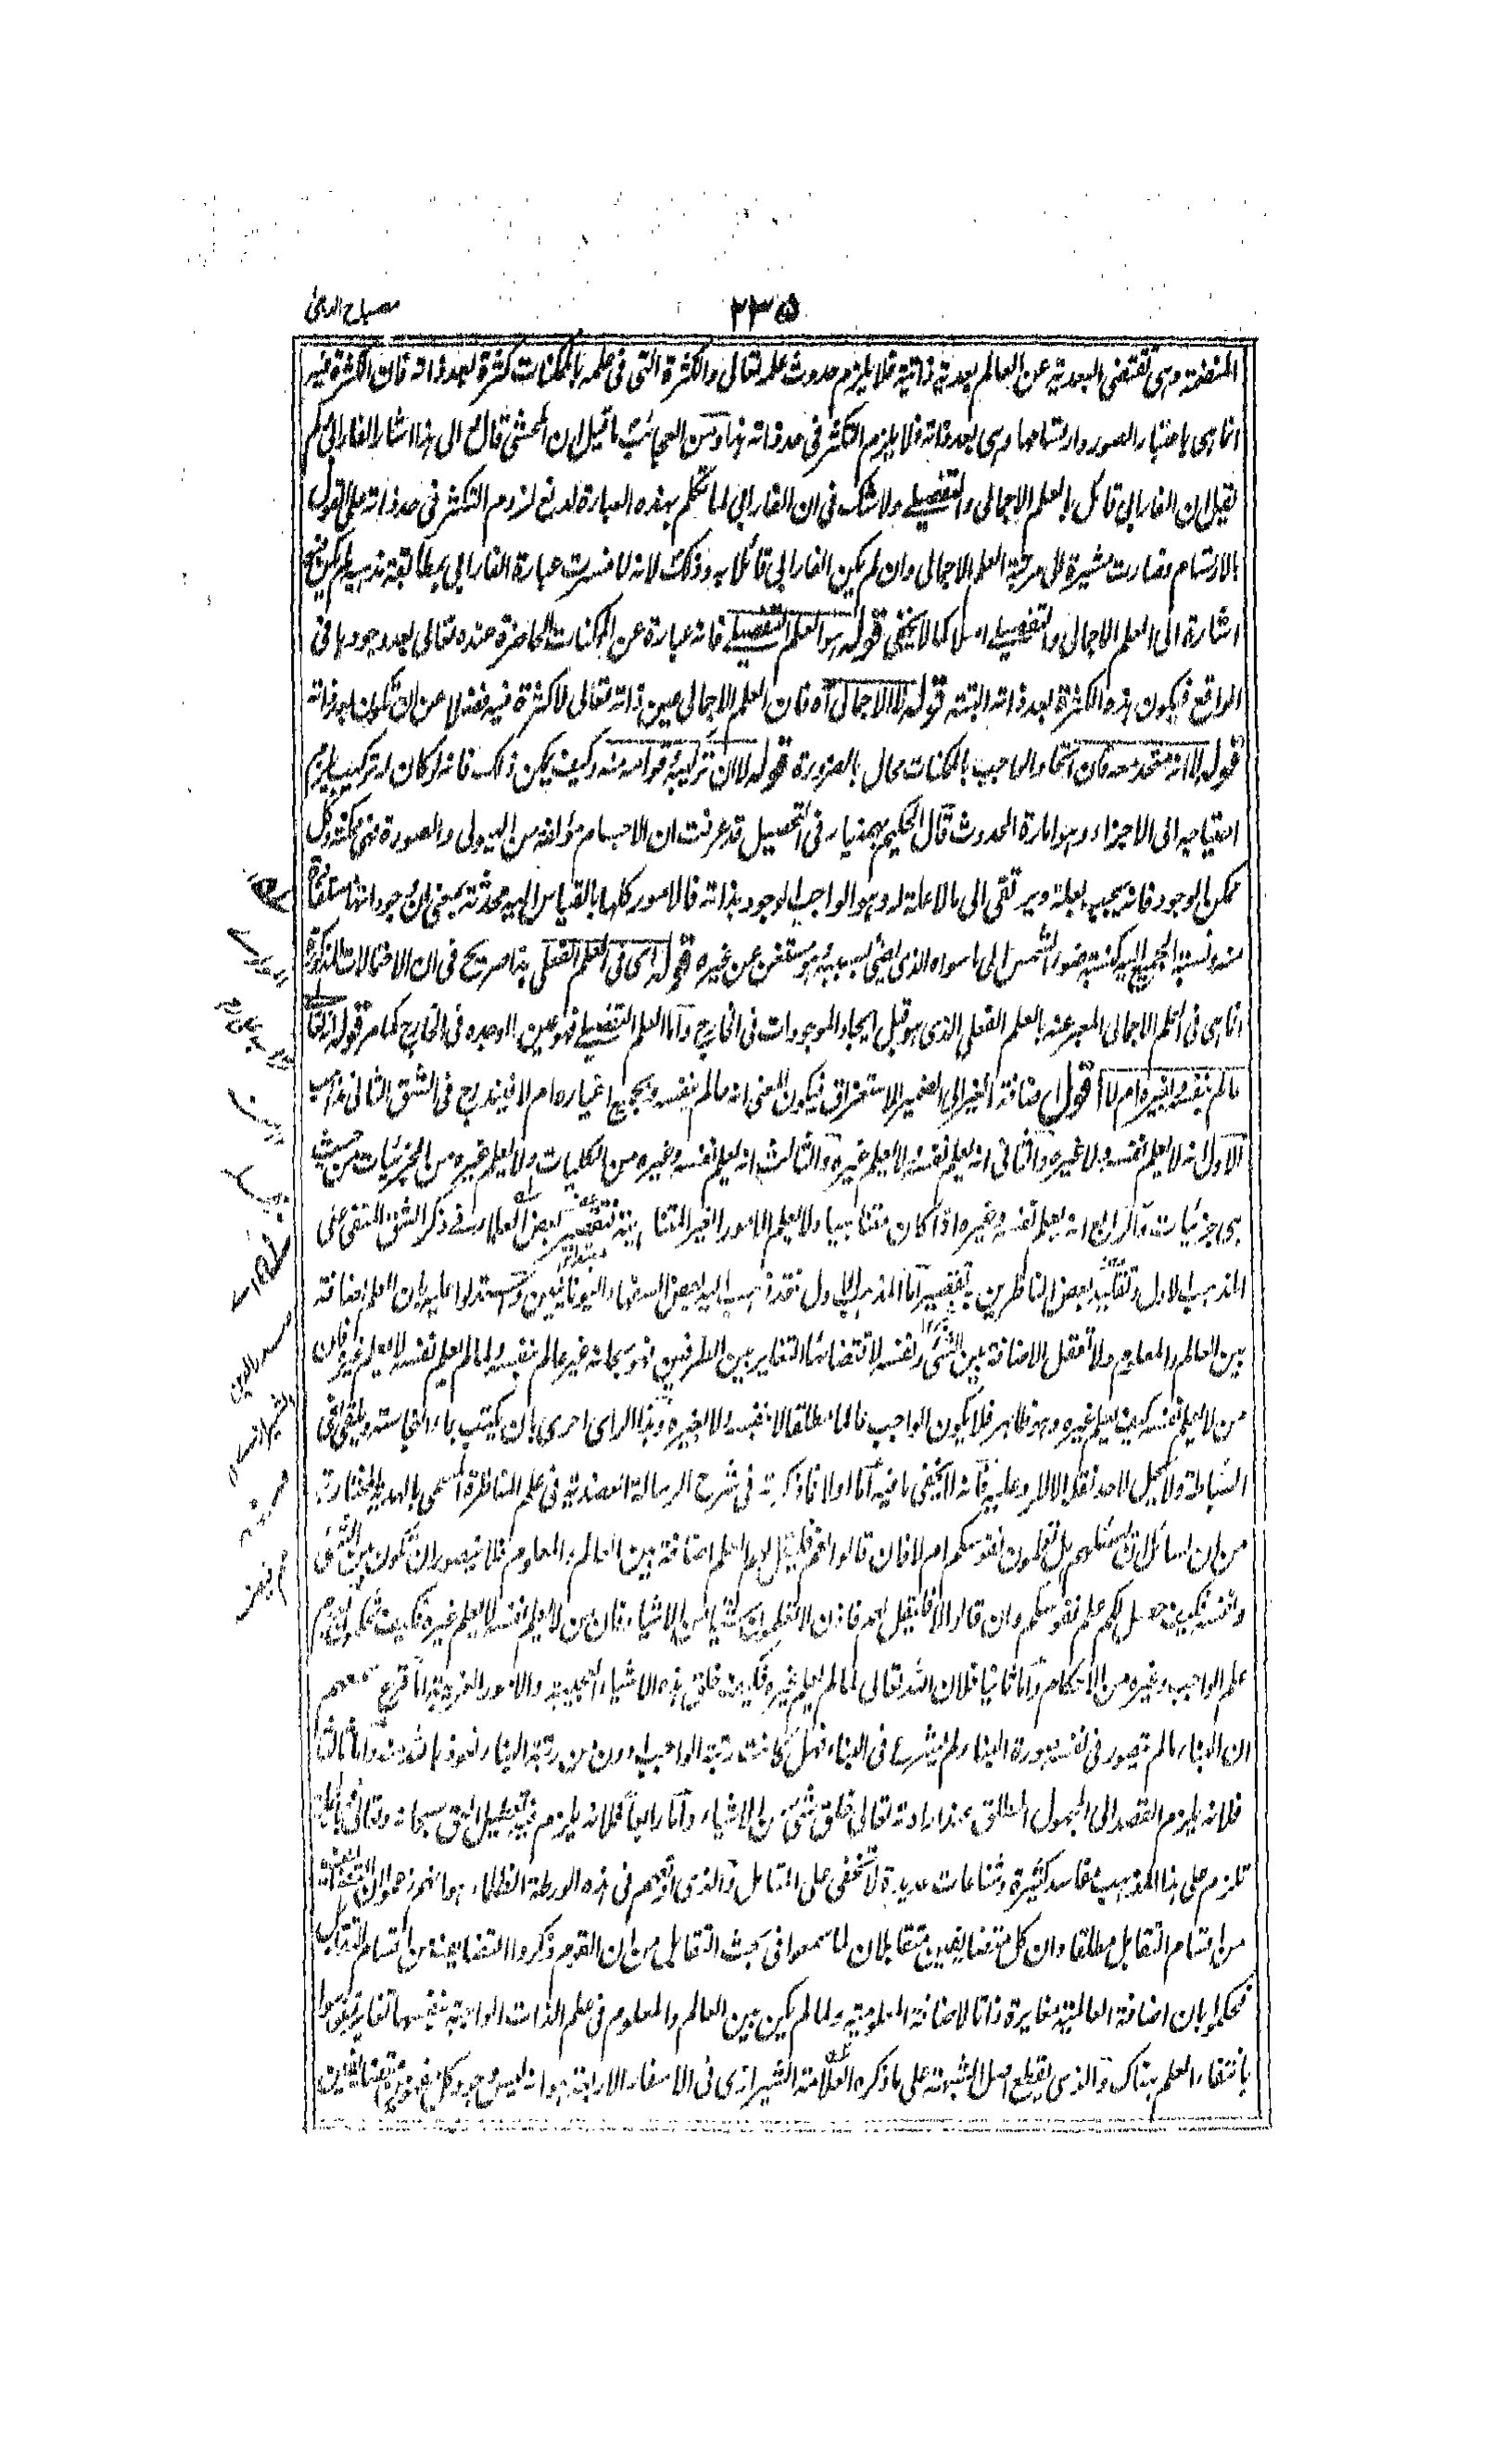 ٢٣٥
مصباح الدجى
المنضمة وهى تقتضى البعدية عن العالم بعدية ذاتية فلا يلزم حدوث علمه تعالى والكثرة التى فى علمه بالممكنات كثرة بعد ذاته فان الكثرة فيه
انما هى باعتبار الصور وارتسامها وهى بعد ذاته فلا يلزم التكثر فى حد ذاته هذا ومن العجائب ما قيل ان المحشى قال الى هذا اشار الفارابى ولم
يقل ان الفارابى قائل بالعلم الاجمالى والتفصيلى ولا شك فى ان الفارابى لما تكلم بهذه العبارة لدفع لزوم التكثر فى حد ذاته على القول
بالارتسام وصارت مشيرة الى مرتبة العلم الاجمالى وان لم يكن الفارابى قائلا به وذلك لانه لما فسرت عبارة الفارابى بمطابقة مذهبه لم يكن فيه
اشارة الى العلم الاجمالى والتفصيلى اصلا كما لا يخفى قوله هو العلم التفصيلى فانه عبارة عن الممكنات الحاضرة عنده تعالى بعد وجودها فى
الواقع فيكون هذه الكثرة بعد ذاته البتة قوله لا الاجمالى آه فان العلم الاجمالى عين ذاته تعالى لا كثرة فيه فضلا عن ان تكون بعد ذاته
قوله لا انه متحد معه فان اتحاد الواجب بالممكنات محال بالضرورة قوله لا ان تركيبه وقوامه منه وكيف يمكن ذلك فانه لو كان له تركيب يلزم
احتياجه الى الاجزاء وهو امارة الحدوث قال الحكيم بهمنيار فى التحصيل قد عرفت ان الاجسام مؤلفة من الهيولى والصورة فهى ممكنة وكل
ممكن الوجود فانه يجب بعلة ويرتقى الى ما لا علة له وهو الواجب الوجود بذاته فالامور كلها بالقياس اليه محدثة بمعنى ان وجوداتها مستفادة
منه ونسبة الجميع اليه كنسبة ضوء الشمس الى ما سواه الذى يضئ بسببه وهو مستغن عن غيره قوله اى فى العلم الفعلى هذا صريح فى ان الاحتمالات المذكورة
انما هى فى العلم الاجمالى المعبر عنه بالعلم الفعلى الذى هو قبل ايجاد الموجودات فى الخارج واما العلم التفصيلى فهو عين ما اوجده فى الخارج كما مر قوله
عالم بنفسه وبغيره ام لا اقول اضافة الغير الى الضمير للاستغراق فيكون المعنى انه عالم بنفسه وبجميع اغياره ام لا فيندرج فى الشق الثانى مذاهب
الاول انه لا يعلم نفسه ولا غيره والثانى انه يعلم نفسه ولا يعلم غيره والثالث انه يعلم نفسه وغيره من الكليات ولا يعلم غيره من الجزئيات من حيث
هى جزئيات والرابع انه يعلم نفسه وغيره اذا كان متناهيا ولا يعلم الامور الغير المتناهية فتقصير بعض العلماء فى ذكر الشق المنفى على
المذهب الاول وتقليد بعض الناظرين به تقصير اما المذهب الاول فقد ذهب اليه بعض السفهاء اليونانيين واستدلوا عليه بان العلم اضافة
بين العالم والمعلوم ولا تعقل الاضافة بين الشئ ونفسه لاقتضائها التغاير بين الطرفين فهو سبحانه غير عالم بنفسه ولما لم يعلم نفسه لا يعلم غيره فان
من لا يعلم نفسه كيف يعلم غيره وهو ظاهر فلا يكون الواجب عالما مطلقا لا بنفسه ولا بغيره وهذا الراى احرى بان يكتب بماء النجاسة ويلقى فى
ولا يحل لاحد نقله الا للرد عليه فانه لا يخفى ما فيه اما اولا فما ذكرته فى شرح الرسالة العضدية فى علم المناظرة المسمى بالهدية المختارية
من ان لسائل ان يسئلهم هل تعلمون نفوسكم ام لا فان قالوا نعم فليقل لهم العلم اضافة بين العالم والمعلوم فلا يتصور ان تكون بين الشئ
ونفسه فكيف حصل لكم علم نفوسكم وان قالوا لا فليقل لهم فاذن لا تعلمون شيئا من الاشياء فان من لا يعلم نفسه لا يعلم غيره فكيف تحكمون بعدم
علم الواجب وغيره من الاحكام واما ثانيا فلان الله تعالى لما لم يعلم غيره فكيف خلق هذه الاشياء العجيبة والامور الغريبة اما قرع سمعهم
ان البناء ما لم يتصور فى نفسه صورة البناء لم يشرع فى البناء فهل كانت رتبة الواجب ادون من رتبة البناء نعوذ بالله منه واما ثالثا
فلانه يلزم القصد الى المجهول المطلق عند ارادته تعالى خلق شئ من الاشياء واما رابعا فلانه يلزم تجهيل الحق سبحانه وتعالى وبالجملة
تلزم على هذا المذهب مفاسد كثيرة وشناعات عديدة لا تخفى على المتامل والذى اوقعهم فى هذه الورطة الظلماء هو انهم زعموا ان
من اقسام التقابل مطلقا وان كل متضايفين متقابلان لما سمعوا فى بحث التقابل من ان القوم ذكروا التضايف من اقسام التقابل
فحكموا بان اضافة العالمية مغايرة ذاتا لاضافة المعلومية ولما لم يكن بين العالم والمعلوم فى علم الذات الواجبة بنفسها تغاير
بانتفاء العلم هناك والذى يقطع اصل الشبهة على ما ذكره العلامة الشيرازى فى الاسفار الاربعة هو انه ليس وجود كل مفهومين متضايفين